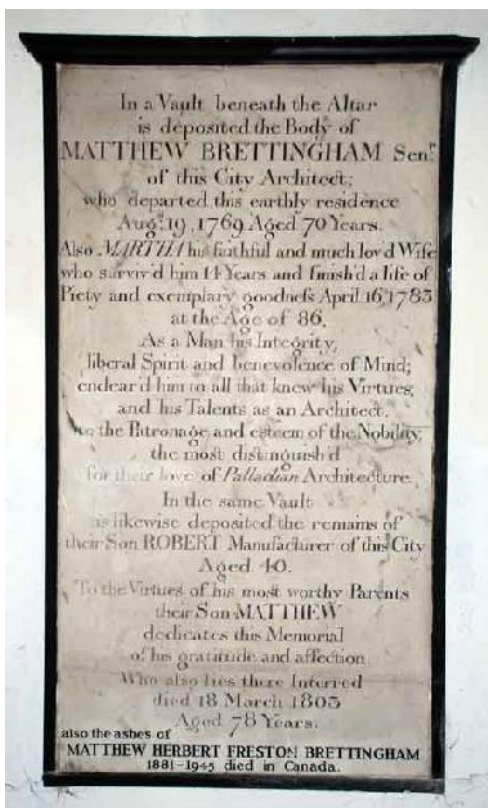 In a Vault beneath the Altar
is deposited the Body of
MATTHEW BRETTINGHAM Senr.
of this City Architect;
who departed this earthly residence
Augt. 19, 1769 Aged 70 Years.
Also MARTHA his faithful and much lov'd Wife
who surviv'd him 14 Years and finish'd a life of
Piety and exemplary goodness April 16, 1783
at the Age of 86.
As a Man his Integrity,
liberal Spirit and benevolence of Mind;
endear'd him to all that knew his Virtues;
and his Talents as an Architect,
to the Patronage and esteem of the Nobility,
the most distinguish'd
for their love of Palladian Architecture
In the same Vault
is likewise deposited the remains of
their Son ROBERT Manufacturer of this City
Aged 40.
To the Virtues of his most worthy Parents
their Son MATTHEW
dedicates this Memorial
of his gratitude and affection
Who also lies there Interred
died 18 March 1803
Aged 78 Years.
also the ashes of
MATTHEW HERBERT FRESTON BRETTINGHAM
1881-1945 died in Canada.